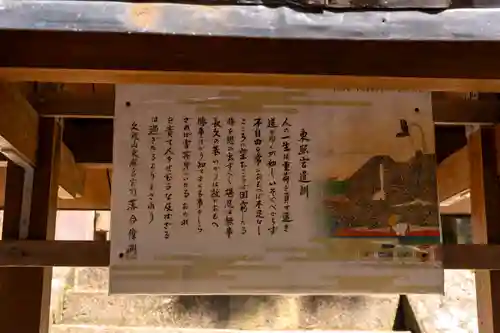 東照宮遺訓
人の一生は重荷を負て遠き
道をゆくがごとし いそぐべからず
不自由を常とおもへば不足なし
こころに望おこらば困窮したる
時を思ひ出すべし 堪忍は無事
長久の基 いかりは敵とおもへ
勝事ばかり知てまくる事をしら
ざれば害其身にいたる おのれ
を責て人をせむるな 及ばざる
は過ぎたるよりまされり
久能山東照宮宮司 落合偉洲